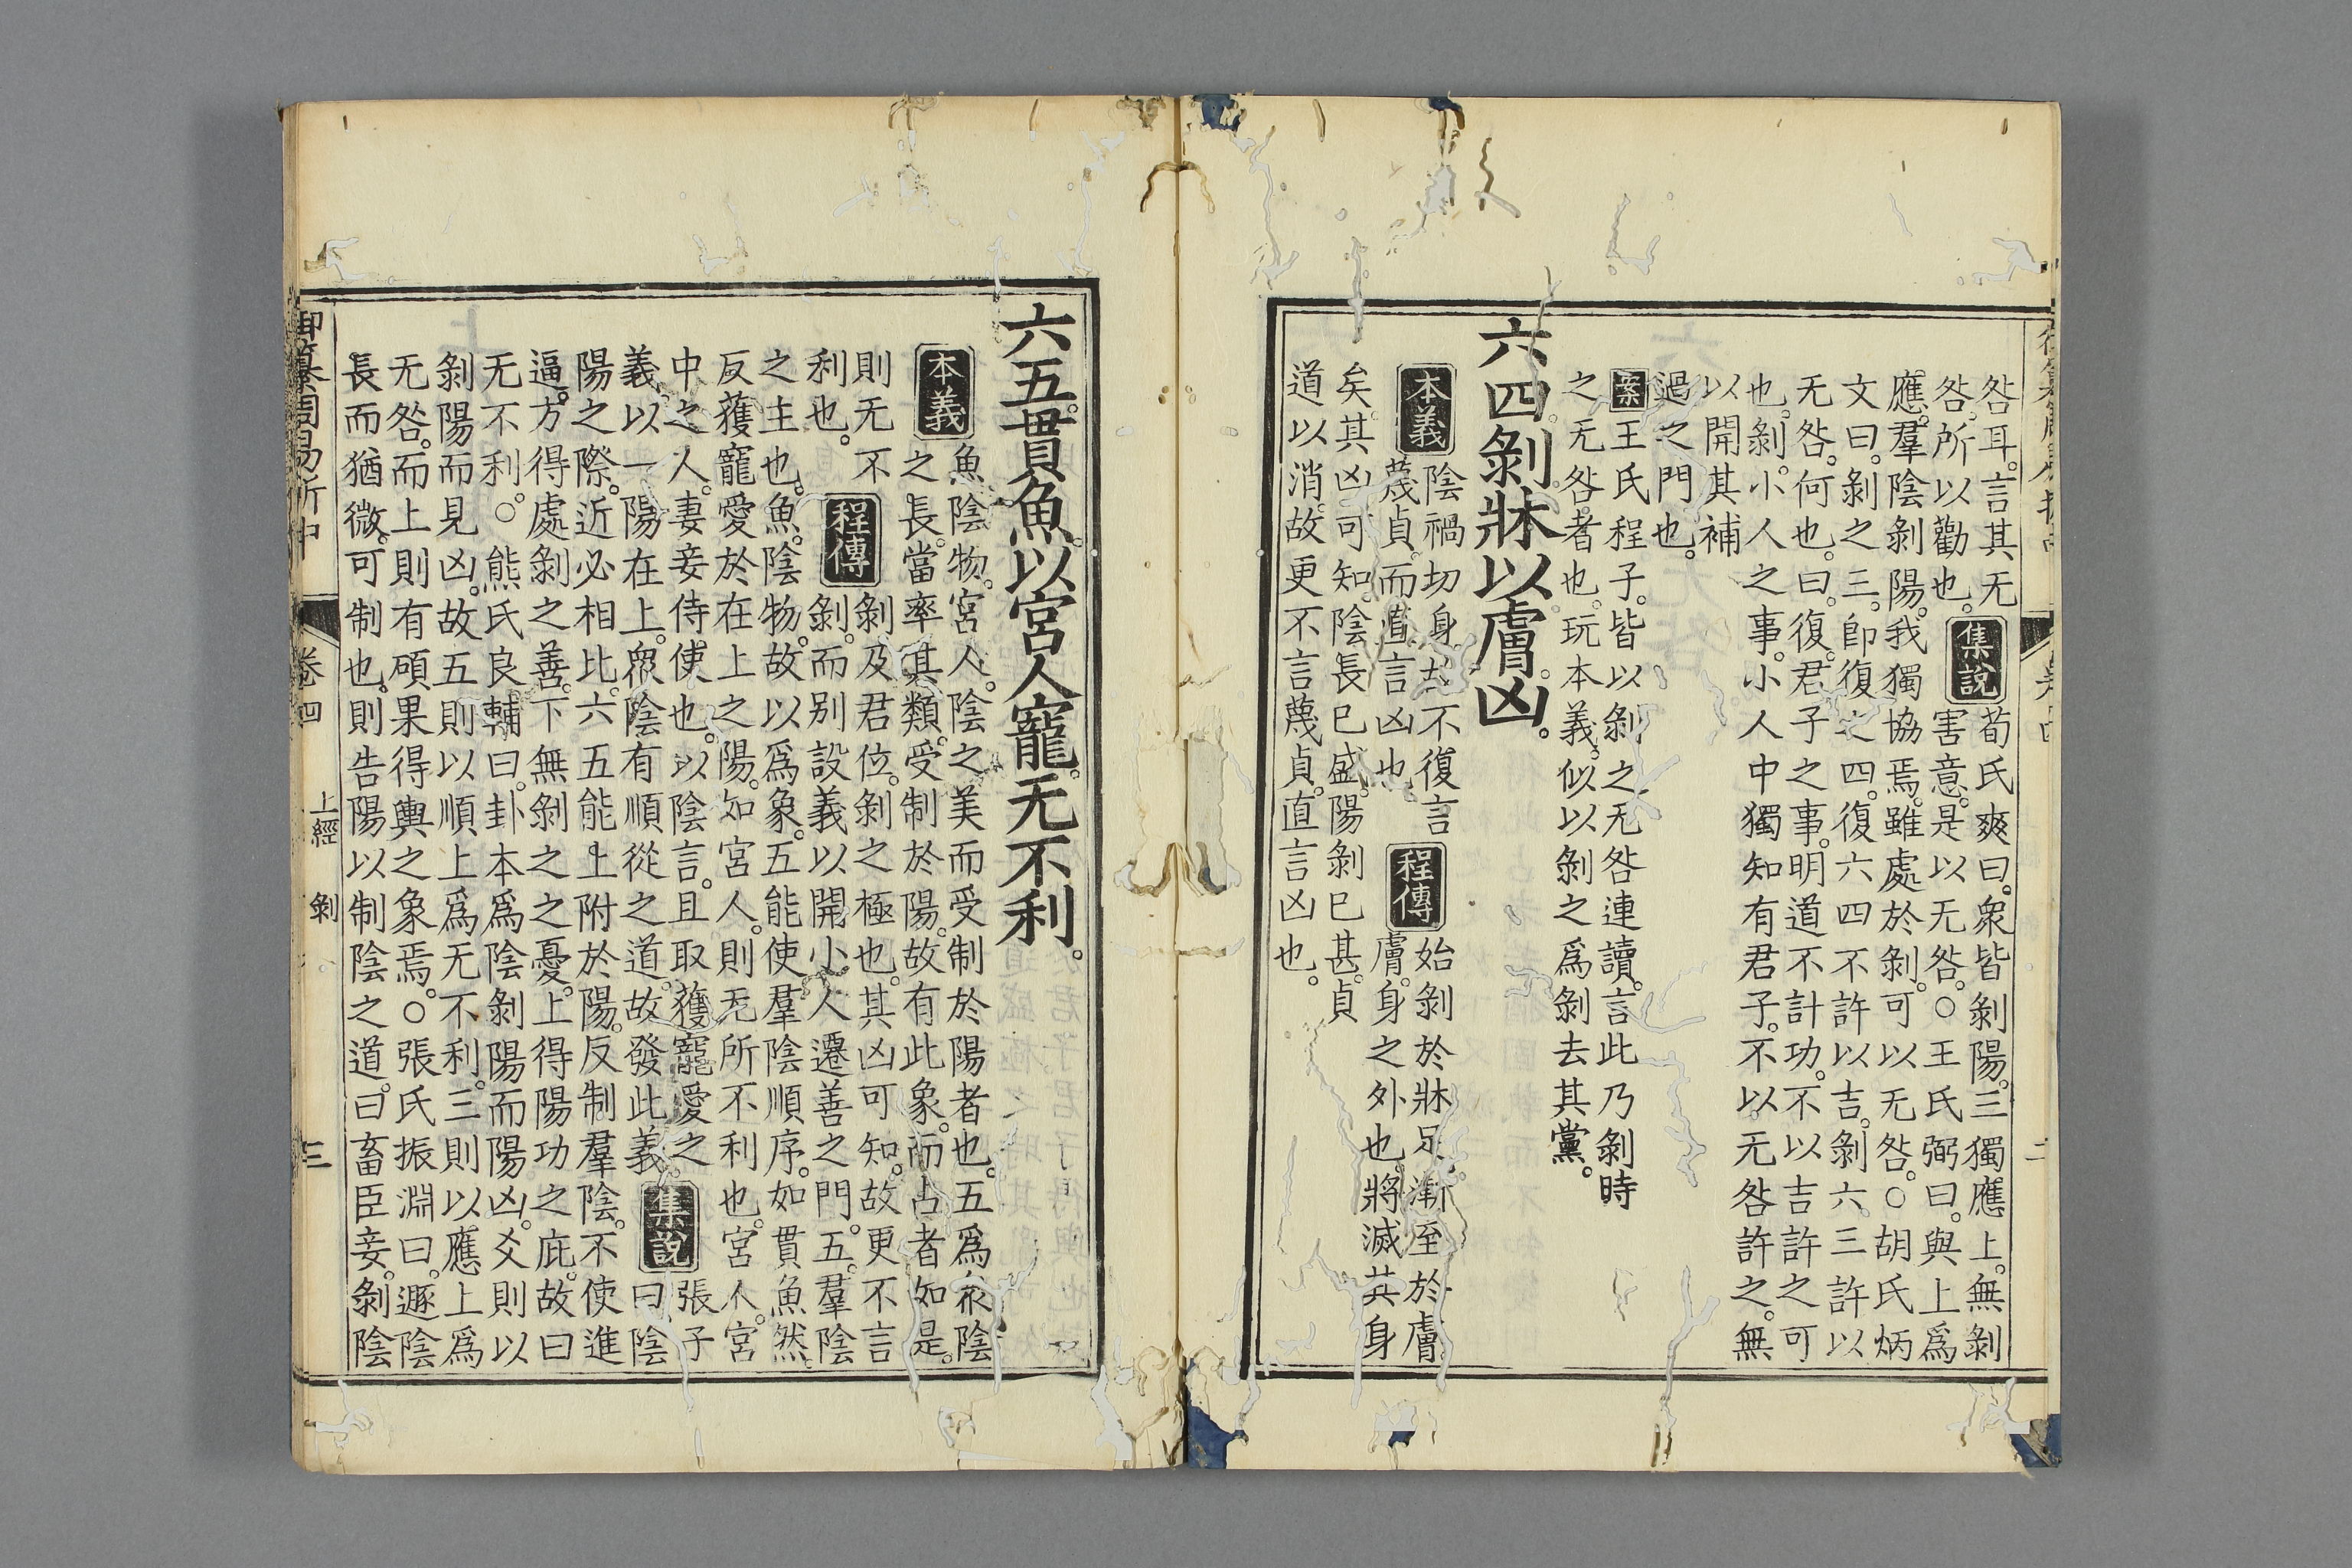 咎耳。言其无
咎。所以勸也。
集說
荀氏爽曰。眾皆剝陽。三獨應上。無剝
害意。是以无咎。○王氏弼曰。與上爲
應。羣陰剝陽。我獨協焉。雖處於剝。可以无咎。○胡氏炳
文曰。剝之三。卽復之四。復六四不許以吉。剝六三許以
无咎。何也。曰。復。君子之事。明道不計功。不以吉許之可
也。剝。小人之事。小人中獨知有君子。不以无咎許之。無
以開其補
過之門也。
案王氏程子。皆以剝之无咎連讀。言此乃剝時
之无咎者也。玩本義。似以剝之爲剝去其黨。
六四。剝牀以膚。凶。
本義
陰禍切身。故不復言
蔑貞。而直言凶也。
程傳
始剝於牀足。漸至於膚。
膚。身之外也。將滅其身
矣。其凶可知。陰長已盛。陽剝已甚。貞
道以消。故更不言蔑貞。直言凶也。
六五。貫魚。以宮人寵。无不利。
本義
魚。陰物。宮人。陰之美而受制於陽者也。五爲眾陰
之長。當率其類。受制於陽。故有此象。而占者如是。
則无不
利也。
程傳
剝及君位。剝之極也。其凶可知。故更不言
剝。而别設義以開小人遷善之門。五。羣陰
之主也。魚。陰物。故以爲象。五能使羣陰順序。如貫魚然。
反獲寵愛於在上之陽。如宮人。則无所不利也。宮人。宮
中之人。妻妾侍使也。以陰言。且取獲寵愛之
義。以一陽在上。眾陰有順從之道。故發此義。
集說
張子
曰陰
陽之際。近必相比。六五能上附於陽。反制羣陰。不使進
逼。方得處剝之善。下無剝之之憂。上得陽功之庇。故曰
无不利。○熊氏良輔曰。卦本爲陰剝陽而陽凶。爻則以
剝陽而見凶。故五則以順上爲无不利。三則以應上爲
无咎。而上則有碩果得輿之象焉。○張氏振淵曰。遯陰
長而猶微。可制也。則告陽以制陰之道。曰畜臣妾。剝陰
御纂周易折中 卷四 上經 剝 三